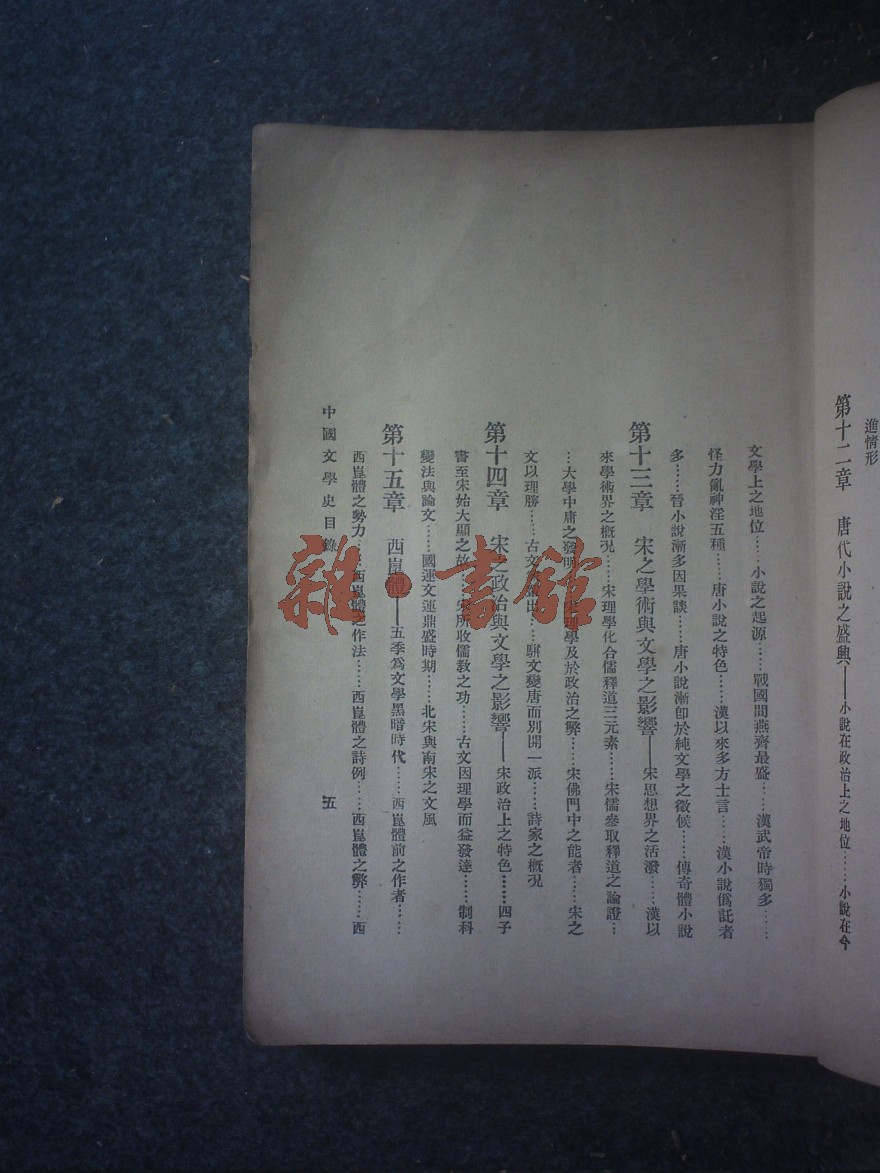 進情形
第十二章　唐代小說之盛興——小說在政治上之地位……小說在今
文學上之地位……小說之起源……戰國間燕齊最盛……漢武帝時獨多……
怪力亂神淫五種……唐小說之特色……漢以來多方士言……漢小說僞託者
多……晉小說漸多因果談……唐小說漸卽於純文學之徵候……傳奇體小說
第十三章　宋之學術與文學之影響——宋思想界之活潑……漢以
來學術界之概況……宋理學化合儒釋道三元素……宋儒參取釋道之論證…
…大學中庸之發明……宋理學及於政治之弊……宋佛門中之能者……宋之
文以理勝……古文大家出……駢文變唐而別開一派……詩家之概況
第十四章　宋之政治與文學之影響——宋政治上之特色……四子
書至宋始大顯之故……宋所收儒教之功……古文因理學而益發達……制科
變法與論文……國運文運鼎盛時期……北宋與南宋之文風
第十五章　西崑體——五季爲文學黑暗時代……西崑體前之作者……
西崑體之勢力……西崑體之作法……西崑體之詩例……西崑體之弊……西
中國文學史目錄　五
雜·書館